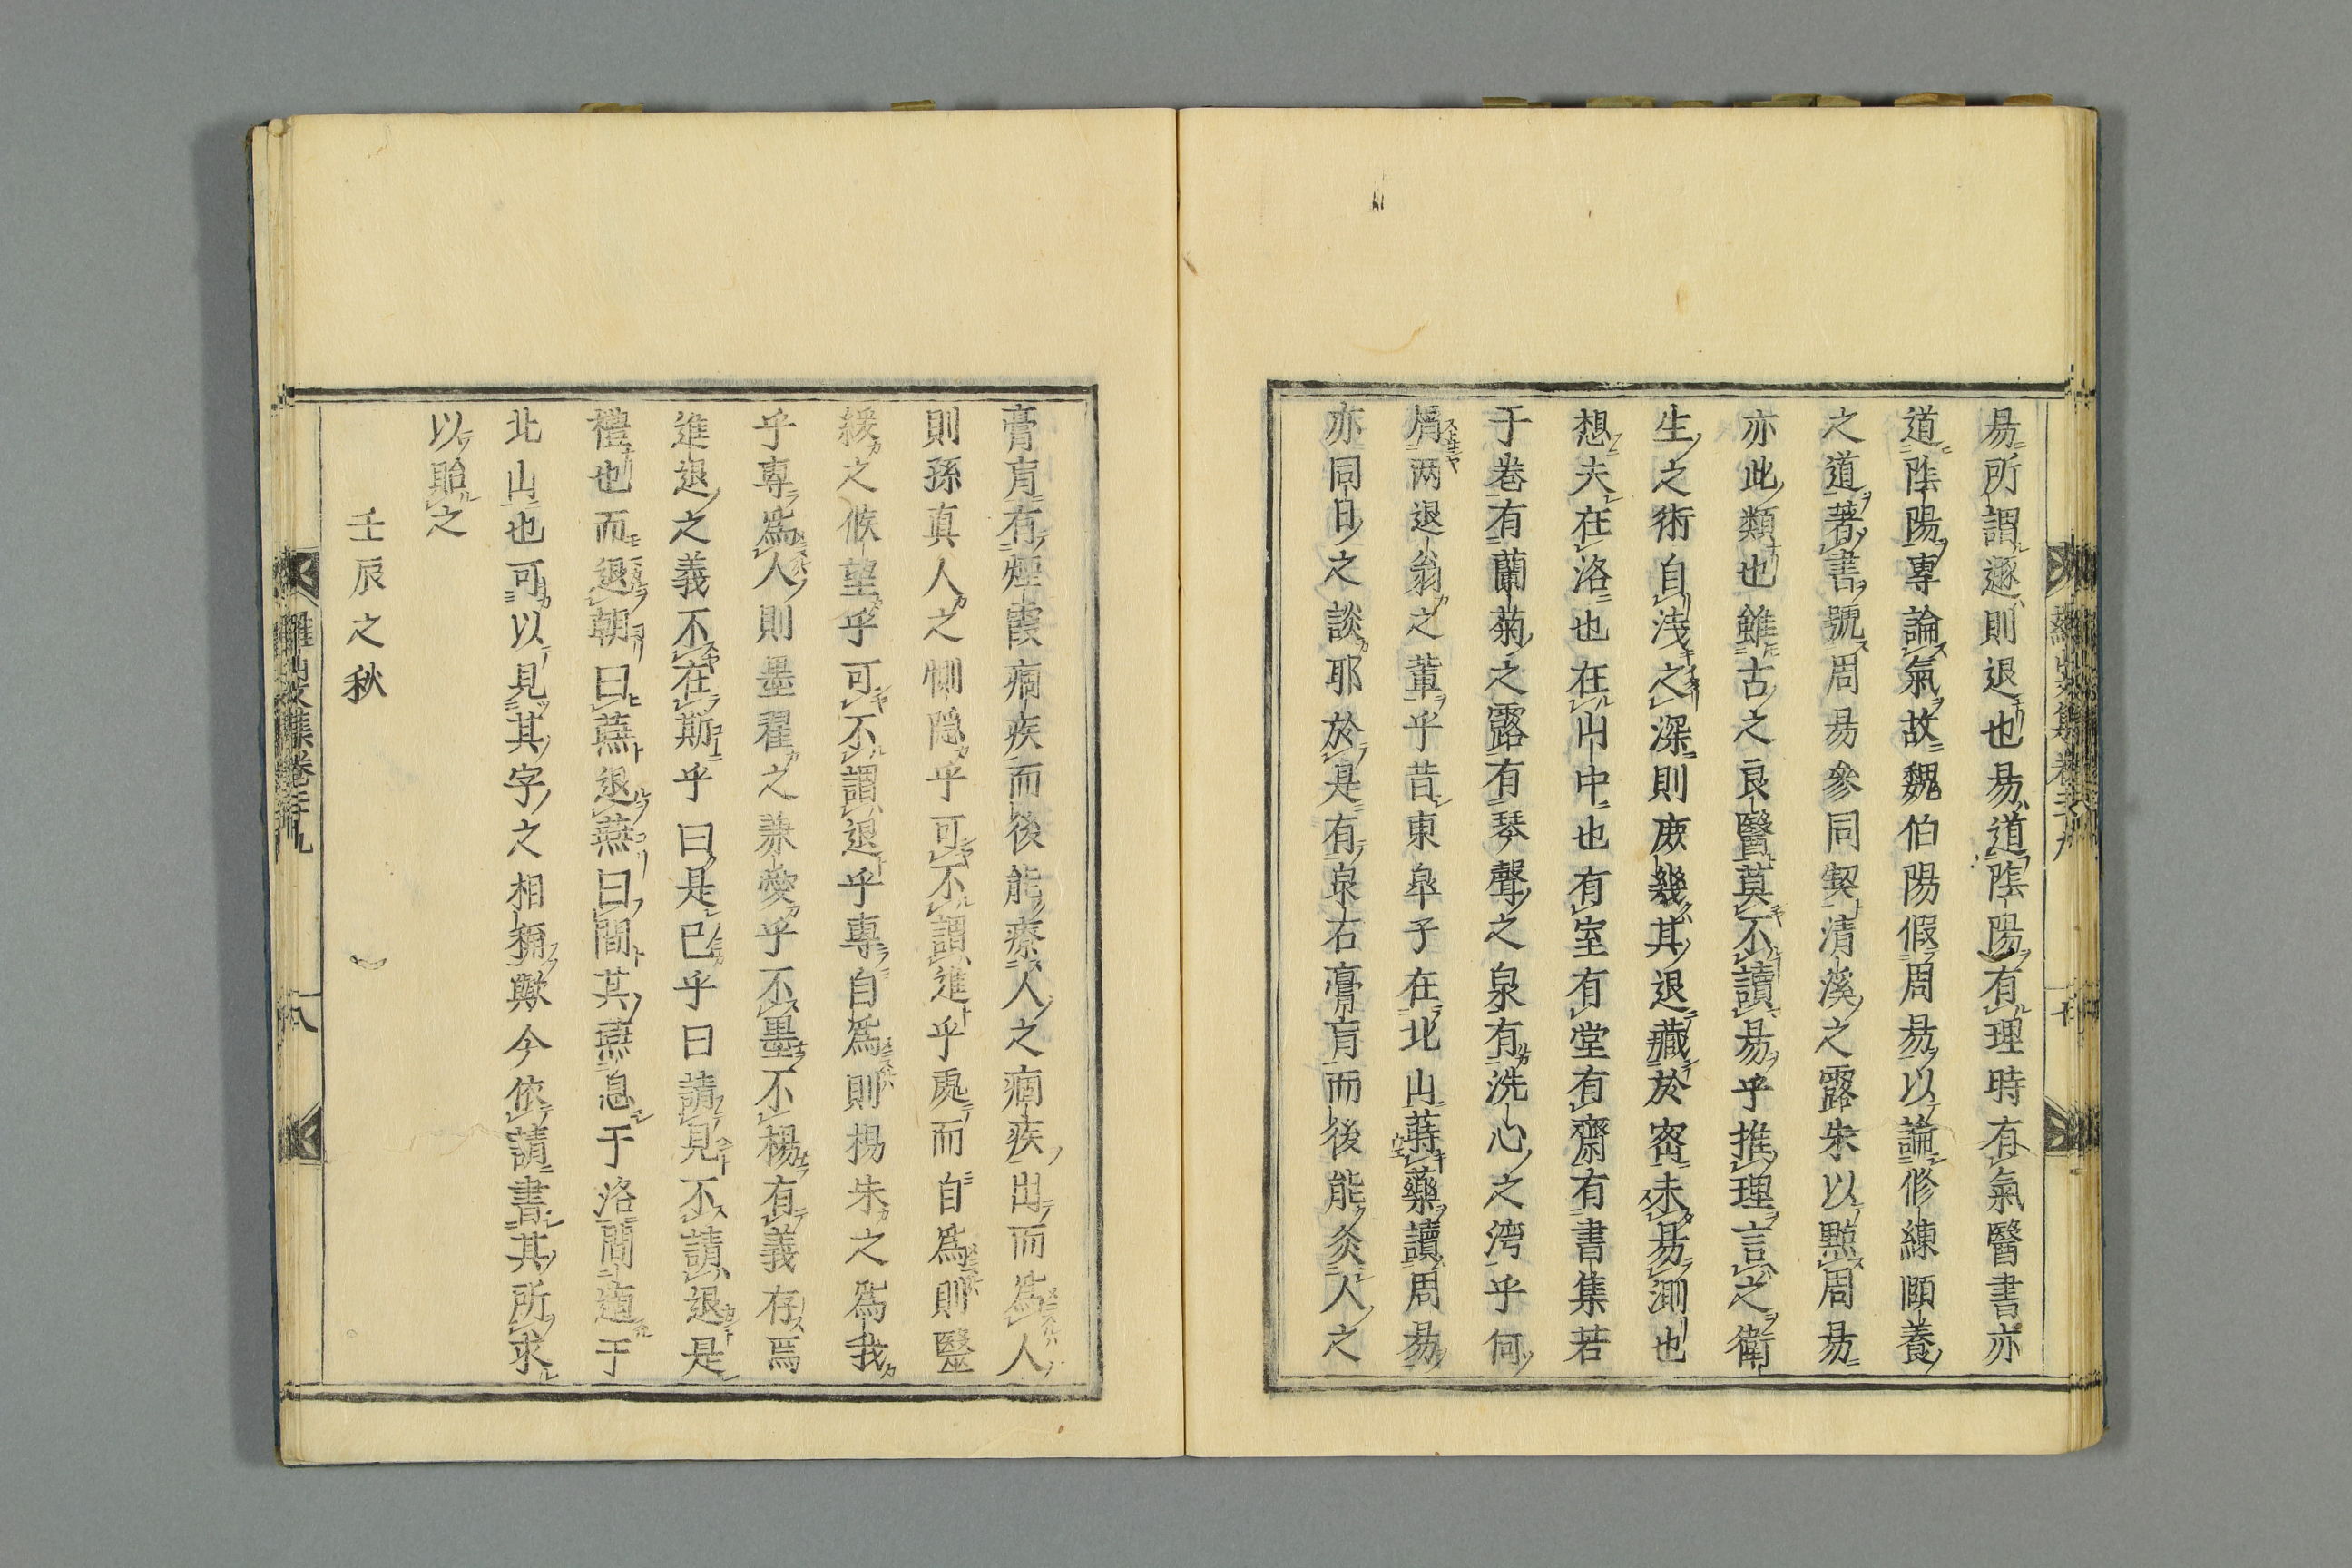 易所謂遯則退也易道陰陽有理時有氣醫書亦
道陰陽專論氣故魏伯陽假周易以論修練頤養
之道著書號周易參同契清溪之露朱以點周易
亦此類也雖古之良醫莫不讀易乎推理言之衛
生之術自淺之深則庶幾其退藏於密未易測也
想夫在洛也在山中也有室有堂有齋有書集若
于卷有蘭菊之露有琴聲之泉有洗心之湾乎何
屑两退翁之葷乎昔東皐子在北山蒔藥讀周易
亦同日之談耶於是有泉石膏肓而後能灸人之
膏肓有煙霞痼疾而後能療人之痼疾出而爲人
則孫真人之惻隠乎可不謂進乎處而自爲則醫
緩之候望乎可不謂退乎專自爲則揚朱之爲我
乎專爲人則墨翟之兼愛乎不墨不楊有義存焉
進退之義不在斯乎曰是已乎曰請見不請退是
禮也而退朝曰燕退燕曰間其燕息于洛間適于
北山也可以見其字之相稱歟今依請書其所求
以貽之
壬辰之秋
羅山文集卷三十九
十八